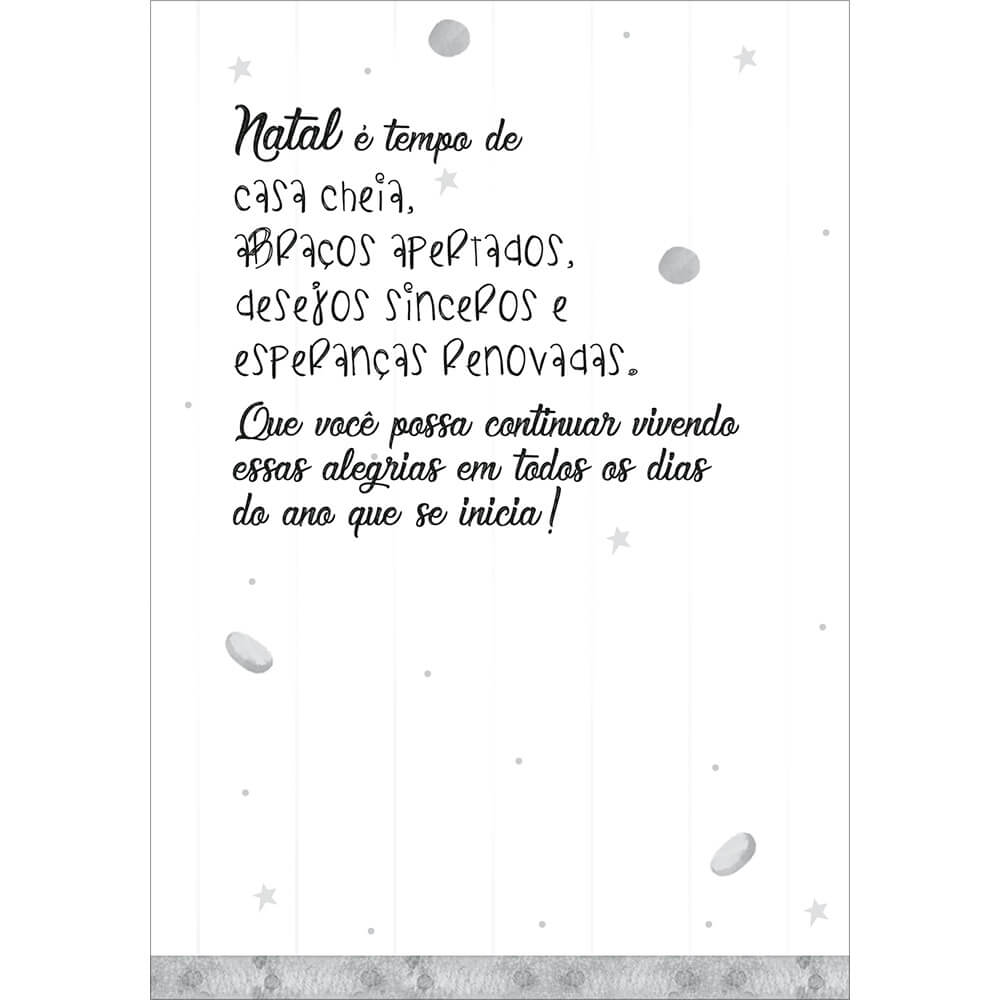 Natal é tempo de
casa cheia,
abraços apertados,
desejos sinceros e
esperanças renovadas.
Que você possa continuar vivendo
essas alegrias em todos os dias
do ano que se inicia!